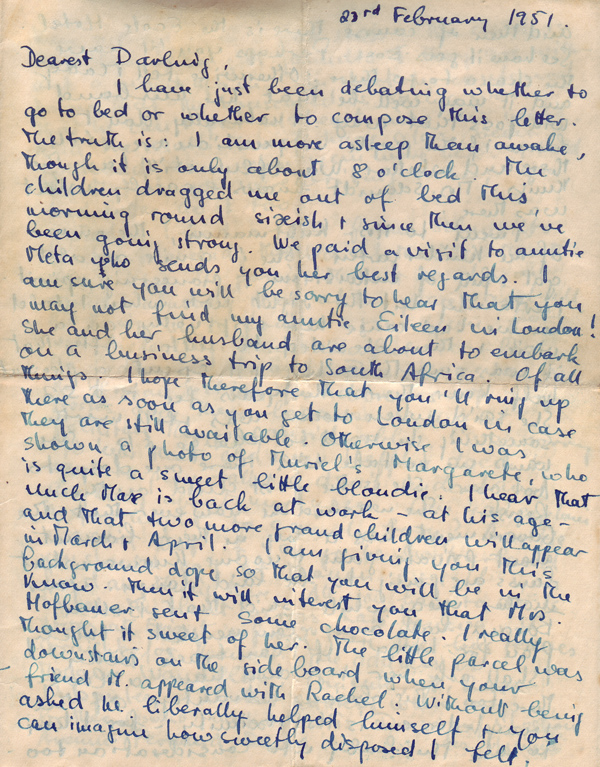 23rd February 1951.
Dearest Darling,
I have just been debating whether to
go to bed or whether to compose this letter.
The truth is: I am more asleep than awake,
though it is only about 8 o'clock. The
children dragged me out of bed this
morning round sixish & since then we've
been going strong. We paid a visit to auntie
Meta who sends you her best regards. I
am sure you will be sorry to hear that you
may not find my auntie Eileen in London!
She and her husband are about to embark
on a business trip to South Africa. Of all
things. I hope therefore that you'll ring up
there as soon as you get to London in case
they are still available. Otherwise I was
shown a photo of Muriel's Margarete, who
is quite a sweet little blondie. I hear that
Uncle Max is back at work - at his age -
and that two more grandchildren will appear
in March & April. I am giving you this
background dope so that you will be in the
know. Then it will interest you that Mrs.
Hofbauer sent some chocolate. I really
thought it sweet of her. The little parcel was
downstairs on the sideboard when your
friend M. appeared with Rachel. Without being
asked he liberally helped himself & you
can imagine how sweetly disposed I felt.